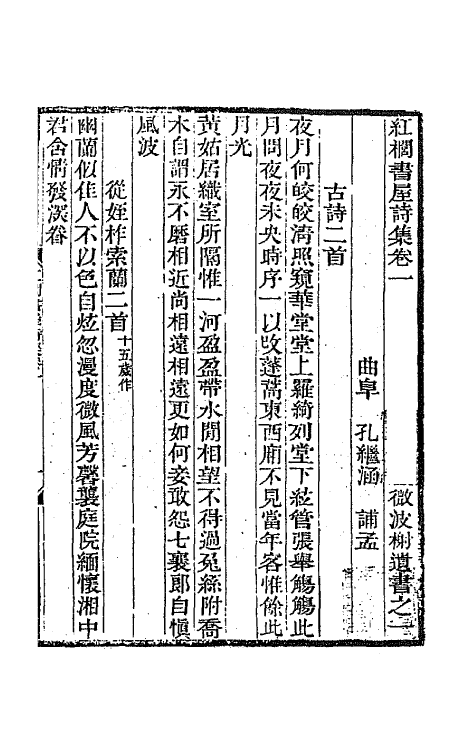 紅櫚書屋詩集卷一　微波榭遺書之一
曲阜　孔繼涵　誧孟
古詩二首
夜月何皎皎淸照窺華堂堂上羅綺列堂下絃管張舉觴觴此
月問夜夜未央時序一以改蓬蒿東西廂不見當年客惟餘此
月光
黃姑居織室所隔惟一河盈盈帶水閒相望不得過兔絲附喬
木自謂永不磨相近尚相遠相遠更如何妾敢怨七襄郞自愼
風波
從姪柞索蘭二首十五歲作
幽蘭似佳人不以色自炫忽漫度微風芳馨襲庭院緬懷湘中
君含情發深眷